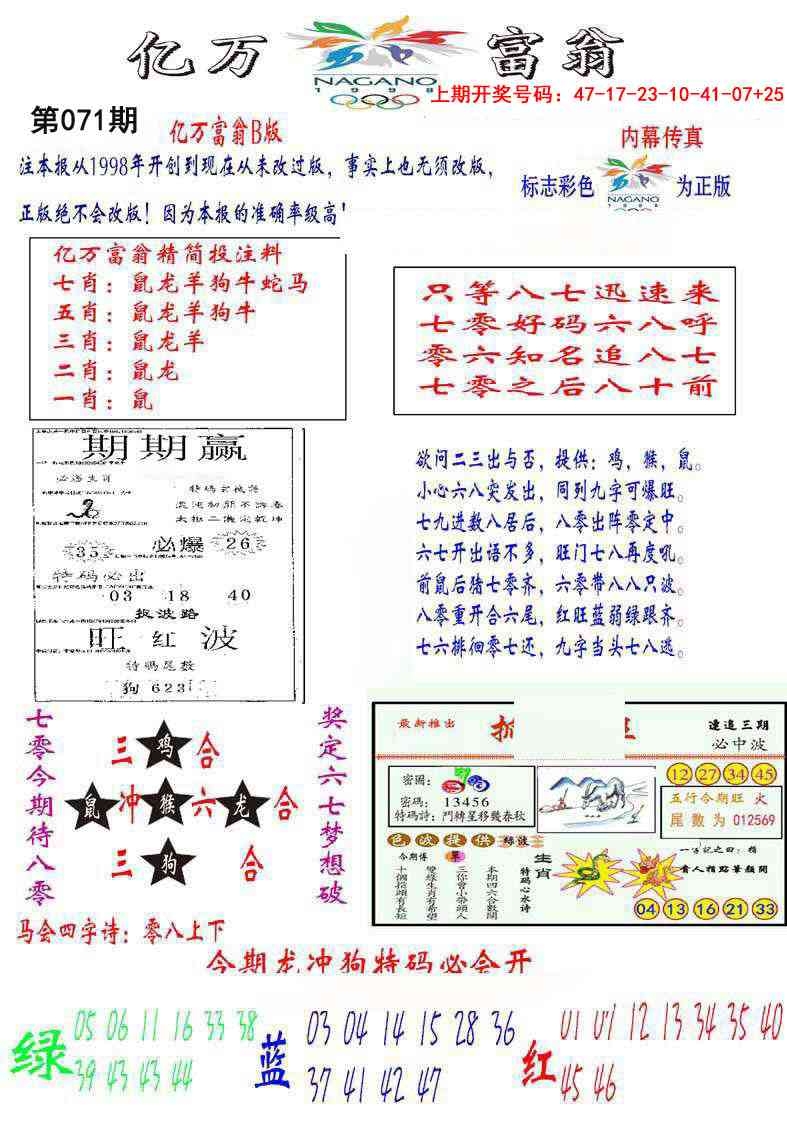 亿万富翁
NAGANO
1998
上期开奖号码：47-17-23-10-41-07+25
第071期
亿万富翁B版
内幕传真
注本报从1998年开创到现在从未改过版，事实上也无须改版，
标志彩色
NAGANO
1998
为正版
正版绝不会改版！因为本报的准确率级高！
亿万富翁精简投注料
七肖：鼠龙羊狗牛蛇马
五肖：鼠龙羊狗牛
三肖：鼠龙羊
二肖：鼠龙
一肖：鼠
只等八七迅速来
七零好码六八呼
零六知名追八七
七零之后八十前
期期赢
必杀生肖
混沌初开不许春
太极二仪定乾坤
35
必爆
26
特码必出
03 18 40
捉波路
旺红波
特码尾数
狗 623
欲问二三出与否，提供：鸡，猴，鼠。
小心六八突发出，同列九字可爆旺。
七九进数八居后，八零出阵零定中。
六七开出语不多，旺门七八再度吼。
前鼠后猪七零齐，六零带八八只波。
八零重开合六尾，红旺蓝弱绿跟齐。
七六排徊零七还，九字当头七八逃。
七零今期待八零
三鸡合
鼠冲猴六龙合
三狗合
奖定六七梦想破
马会四字诗：零八上下
最新推出
連追三期
必中波
密圖：
密碼：13456
特碼詩：鬥轉星移幾春秋
12 27 34 45
五行今期旺 火
尾數为 012569
色波提供 绿波
今期傳
單
十個指頭有長短
雙綠生肖有希望
三你會小帶頭人
本期四六合數開
特码心水诗
生肖
一字記之曰：指
貴人指點筆顏開
04 13 16 21 33
今期龙冲狗特码必会开
绿
05 06 11 16 33 38
39 43 43 44
蓝
03 04 14 15 28 36
37 41 42 47
红
01 07 12 13 34 35 40
45 46